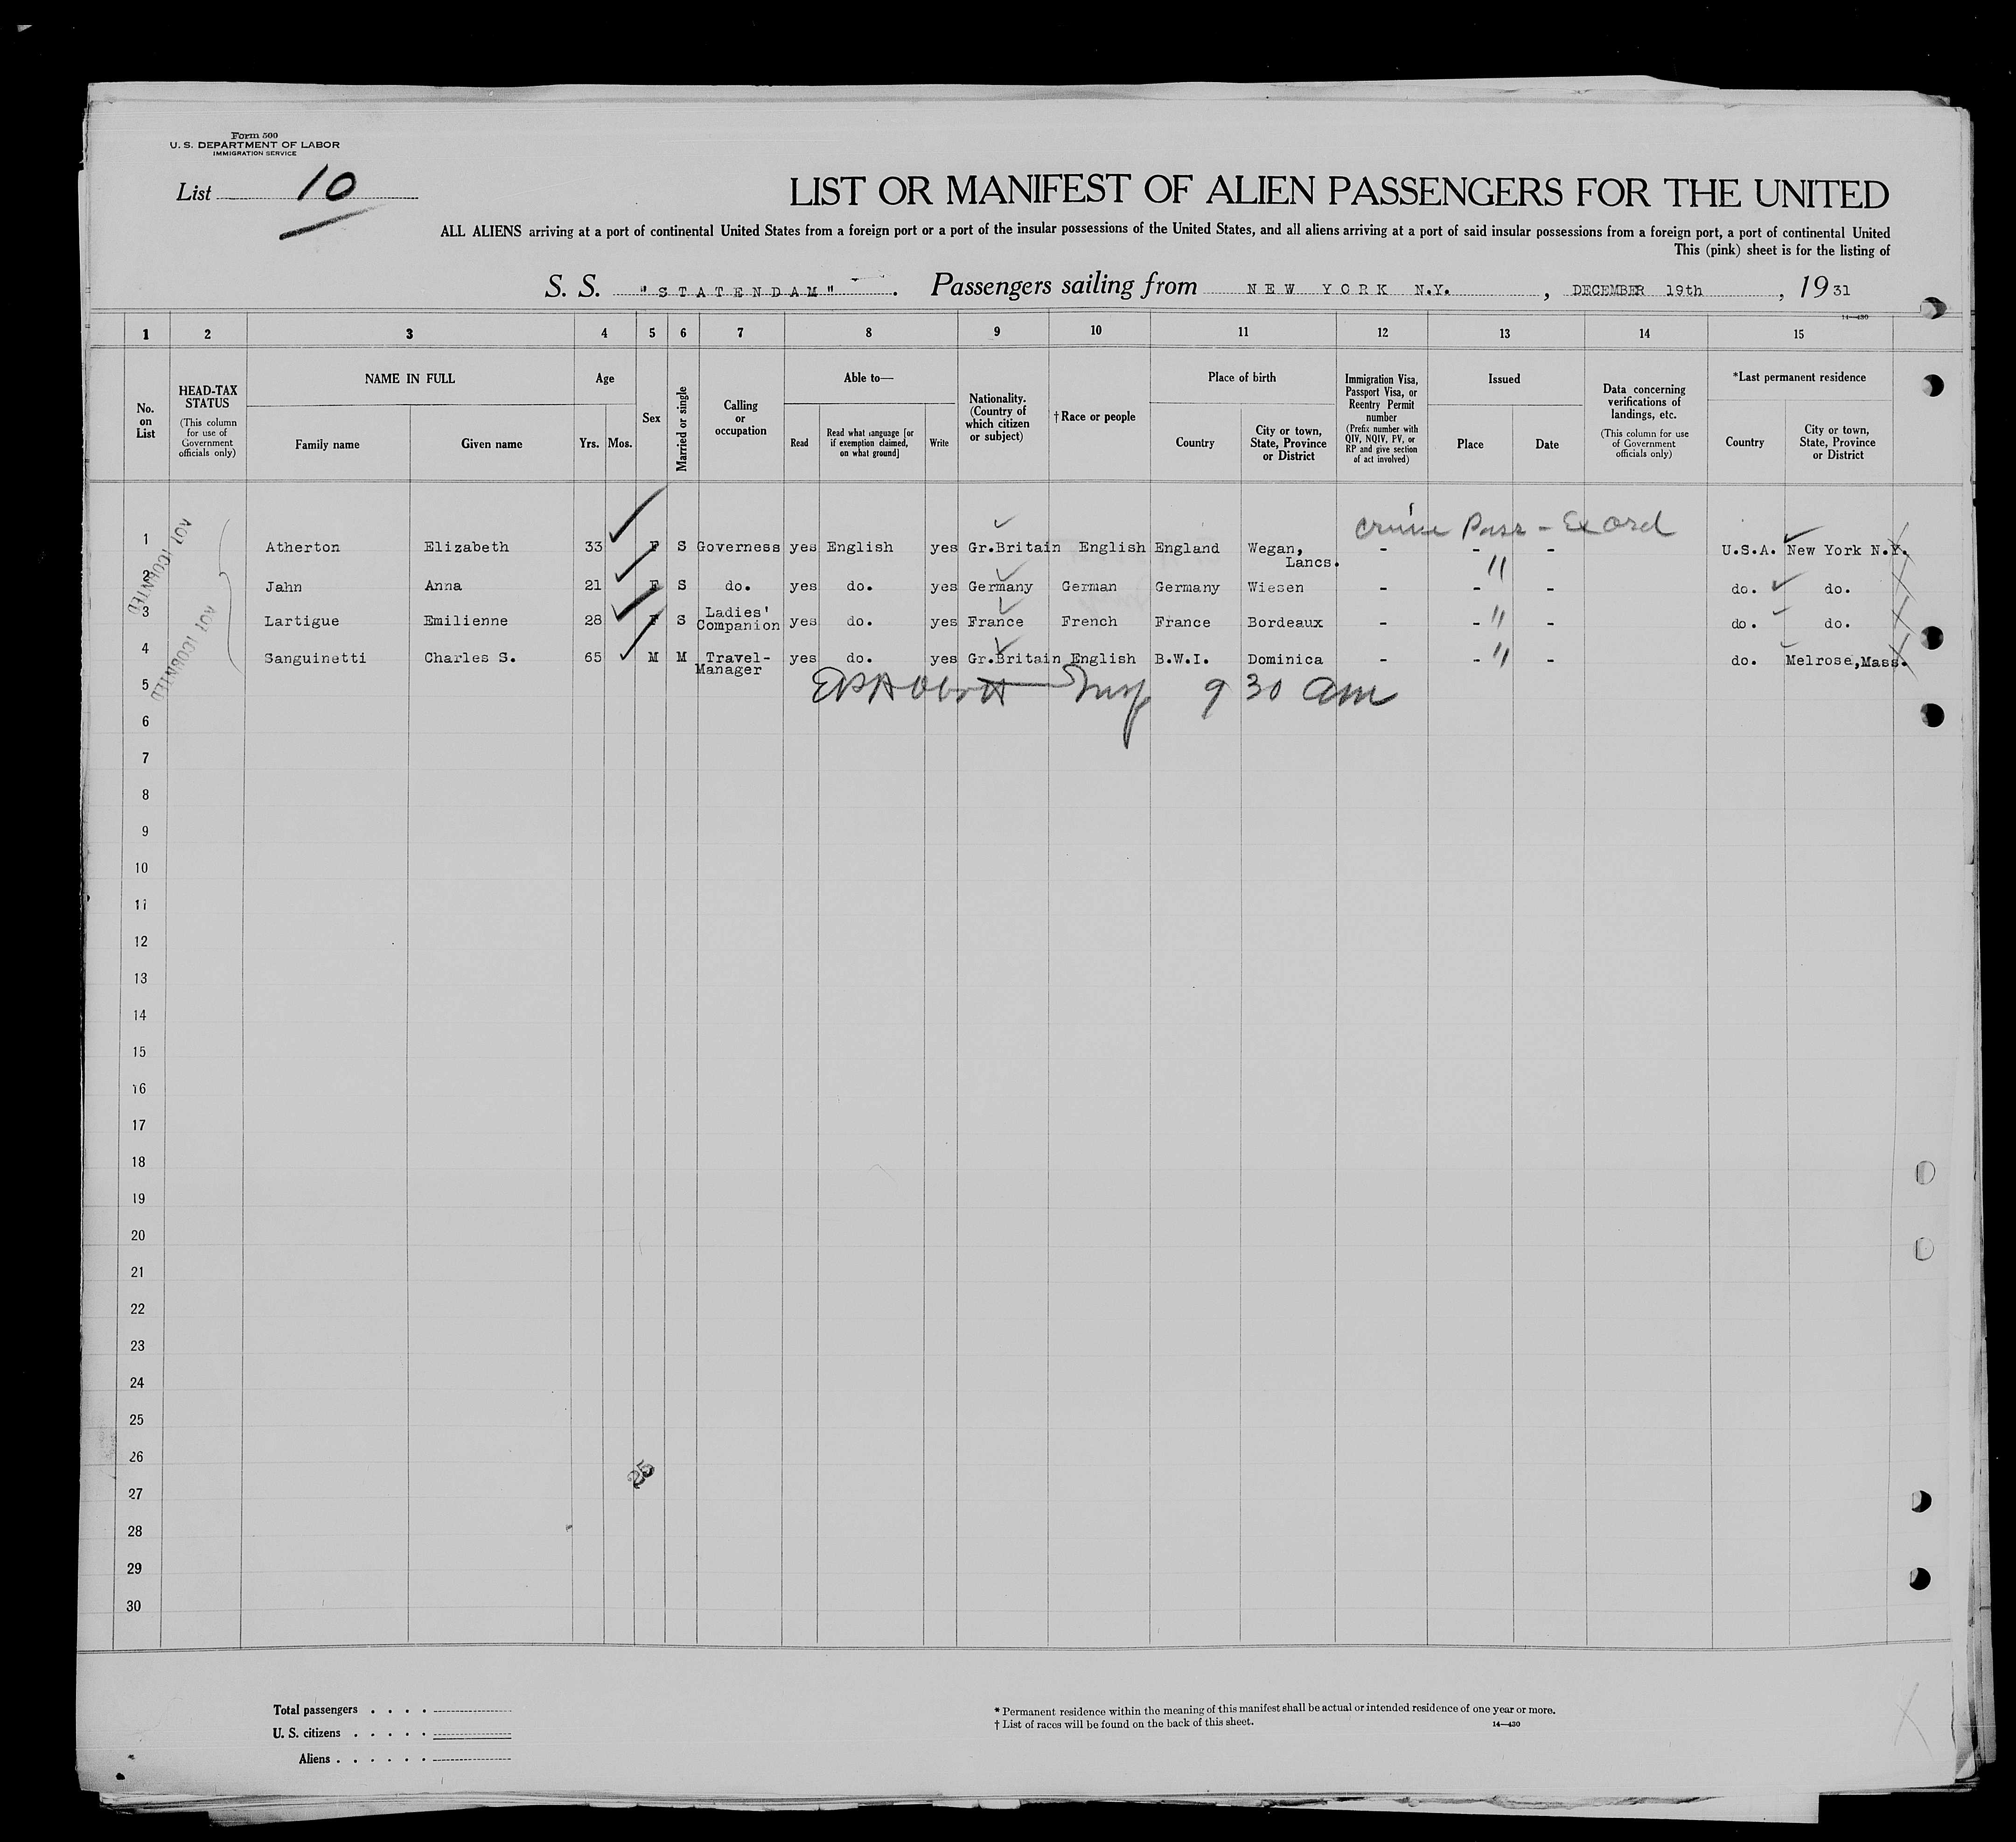 Form 500
U. S. DEPARTMENT OF LABOR
IMMIGRATION SERVICE
List 10
LIST OR MANIFEST OF ALIEN PASSENGERS FOR THE UNITED
ALL ALIENS arriving at a port of continental United States from a foreign port or a port of the insular possessions of the United States, and all aliens arriving at a port of said insular possessions from a foreign port, a port of continental United
This (pink) sheet is for the listing of
S. S. "STATENDAM" . Passengers sailing from NEW YORK N.Y. , DECEMBER 19th , 1931
14—430
1 2 3 4 5 6 7 8 9 10 11 12 13 14 15
No. on List
HEAD-TAX STATUS
(This column for use of Government officials only)
NAME IN FULL
Family name Given name
Age
Yrs. Mos.
Sex
Married or single
Calling or occupation
Able to—
Read
Read what language [or if exemption claimed, on what ground]
Write
Nationality. (Country of which citizen or subject)
†Race or people
Place of birth
Country
City or town, State, Province or District
Immigration Visa, Passport Visa, or Reentry Permit number
(Prefix number with QIV, NQIV, PV, or RP and give section of act involved)
Issued
Place Date
Data concerning verifications of landings, etc.
(This column for use of Government officials only)
*Last permanent residence
Country
City or town, State, Province or District
cruise Pass -
1 Atherton Elizabeth 33 F S Governess yes English yes Gr.Britain English England Wegan, Lancs. - - - U.S.A. New York N.Y.
2 Jahn Anna 21 F S do. yes do. yes Germany German Germany Wiesen - - " - do. do.
3 Lartigue Emilienne 28 F S Ladies' Companion yes do. yes France French France Bordeaux - - " - do. do.
4 Sanguinetti Charles S. 65 M M Travel-Manager yes do. yes Gr.Britain English B.W.I. Dominica - - " - do. Melrose,Mass.
5 Insp 9 30 am
6
7
8
9
10
11
12
13
14
15
16
17
18
19
20
21
22
23
24
25
26
25
27
28
29
30
Total passengers . . . .
U. S. citizens . . . . .
Aliens . . . . . .
* Permanent residence within the meaning of this manifest shall be actual or intended residence of one year or more.
† List of races will be found on the back of this sheet. 14—430